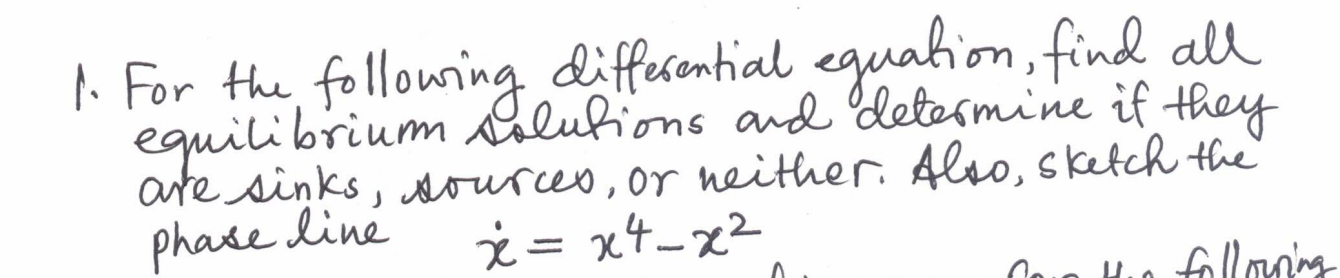 1. For the following differential equation, find all
equilibrium solutions and determine if they
are sinks, sources, or neither. Also, sketch the
phase line ẋ = x⁴ - x²
following